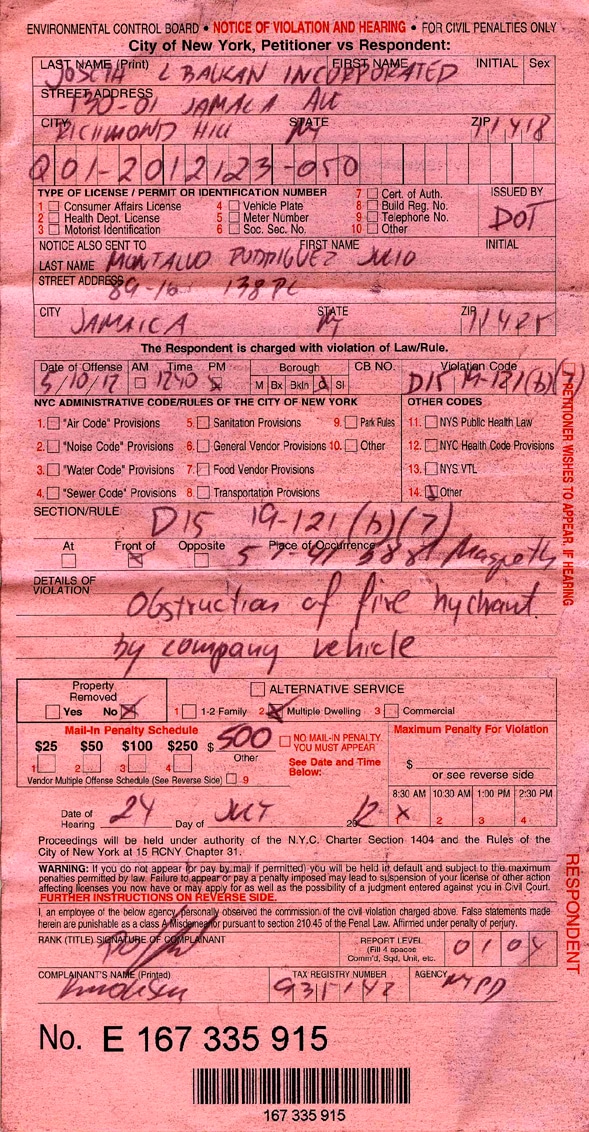 ENVIRONMENTAL CONTROL BOARD • NOTICE OF VIOLATION AND HEARING • FOR CIVIL PENALTIES ONLY
City of New York, Petitioner vs Respondent:
LAST NAME (Print) FIRST NAME INITIAL Sex
JOSEPH L BALKAN INCORPORATED
STREET ADDRESS
130-01 JAMACA AVE
CITY STATE ZIP
RICHMOND HILL NY 11418
Q01-2012123-050
TYPE OF LICENSE / PERMIT OR IDENTIFICATION NUMBER
1 Consumer Affairs License 4 Vehicle Plate 7 Cert. of Auth. ISSUED BY
2 Health Dept. License 5 Meter Number 8 Build Reg. No. DOT
3 Motorist Identification 6 Soc. Sec. No. 9 Telephone No.
10 Other
NOTICE ALSO SENT TO FIRST NAME INITIAL
LAST NAME MONTALVO RODRIGUEZ JULIO
STREET ADDRESS
89-16 138 PL
CITY STATE ZIP
JAMAICA NY 11435
The Respondent is charged with violation of Law/Rule.
Date of Offense AM Time PM Borough CB NO. Violation Code
5/10/12 1240 M Bx Bkln Q SI D15 19-121(b)(7)
NYC ADMINISTRATIVE CODE/RULES OF THE CITY OF NEW YORK OTHER CODES
1. "Air Code" Provisions 5. Sanitation Provisions 9. Park Rules 11. NYS Public Health Law
2. "Noise Code" Provisions 6. General Vendor Provisions 10. Other 12. NYC Health Code Provisions
3. "Water Code" Provisions 7. Food Vendor Provisions 13. NYS VTL
4. "Sewer Code" Provisions 8. Transportation Provisions 14. Other
SECTION/RULE
D15 19-121(b)(7)
At Front of Opposite Place of Occurrence
DETAILS OF VIOLATION
Obstruction of fire hydrant
by company vehicle
Property Removed
Yes No
ALTERNATIVE SERVICE
1 1-2 Family 2 Multiple Dwelling 3 Commercial
Mail-In Penalty Schedule
$25 $50 $100 $250 $ 500 Other
1 2 3 4
Vendor Multiple Offense Schedule (See Reverse Side) 9
NO MAIL-IN PENALTY. YOU MUST APPEAR
See Date and Time Below:
Maximum Penalty For Violation
$
or see reverse side
8:30 AM 10:30 AM 1:00 PM 2:30 PM
1 2 3 4
Date of Hearing 24 Day of JULY 2012
Proceedings will be held under authority of the N.Y.C. Charter Section 1404 and the Rules of the
City of New York at 15 RCNY Chapter 31.
WARNING: If you do not appear (or pay by mail if permitted) you will be held in default and subject to the maximum
penalties permitted by law. Failure to appear or pay a penalty imposed may lead to suspension of your license or other action
affecting licenses you now have or may apply for as well as the possibility of a judgment entered against you in Civil Court.
FURTHER INSTRUCTIONS ON REVERSE SIDE.
I, an employee of the below agency, personally observed the commission of the civil violation charged above. False statements made
herein are punishable as a class A Misdemeanor pursuant to section 210.45 of the Penal Law. Affirmed under penalty of perjury.
RANK (TITLE) SIGNATURE OF COMPLAINANT
REPORT LEVEL
(Fill 4 spaces
Comm'd, Sqd, Unit, etc.
COMPLAINANT'S NAME (Printed) TAX REGISTRY NUMBER AGENCY
NYPD
No. E 167 335 915
167 335 915
PETITIONER WISHES TO APPEAR, IF HEARING
RESPONDENT